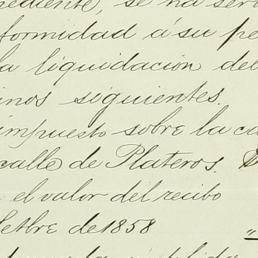 ediente, se ha ser
formidad á su pe
la liquidacion del
inos siguientes.
impuesto sobre la ca
calle de Plateros.
el valor del recibo
etbre de 1858